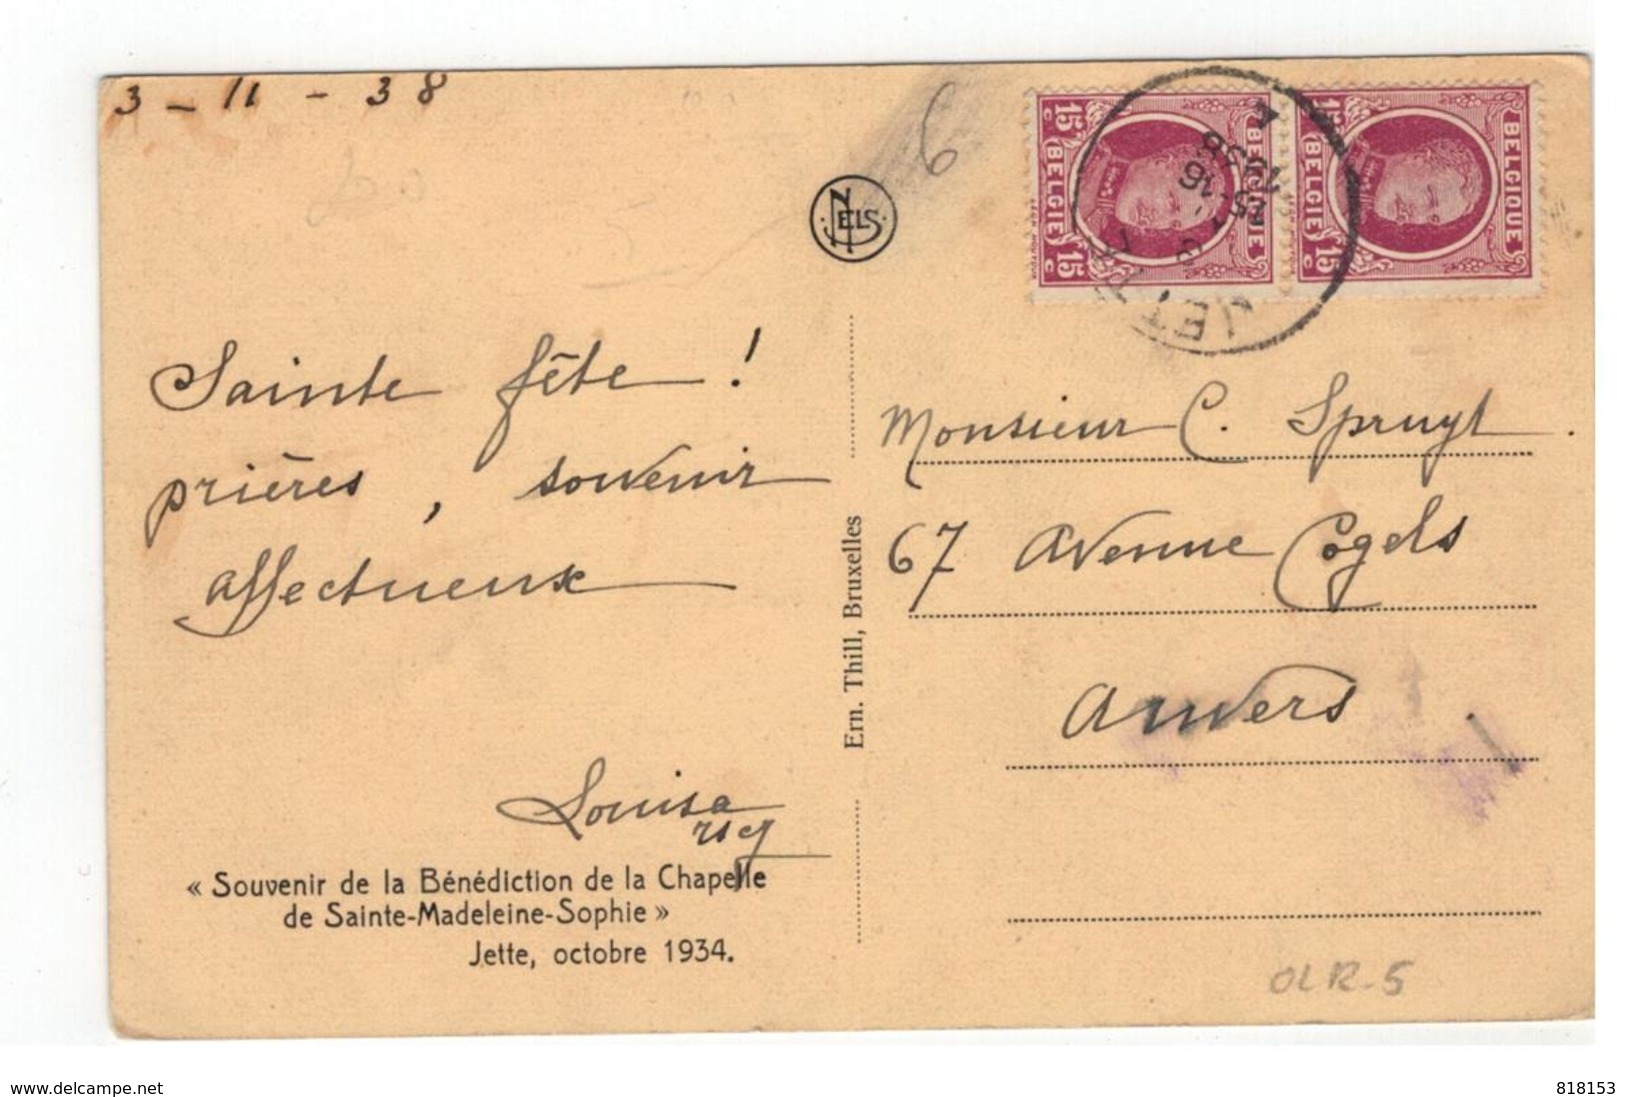 3 - 11 - 38
6
NELS
15 c BELGIE 15 c
BELGIQUE
15 c BELGIE 15 c
BELGIQUE
JETTE
Sainte fête !
prières, souvenir
affectueux
Louisa
rscj
« Souvenir de la Bénédiction de la Chapelle
de Sainte-Madeleine-Sophie »
Jette, octobre 1934.
Ern. Thill, Bruxelles
Monsieur C. Spruyt.
67 Avenue Cogels
Anvers
OLR-5
www.delcampe.net
818153